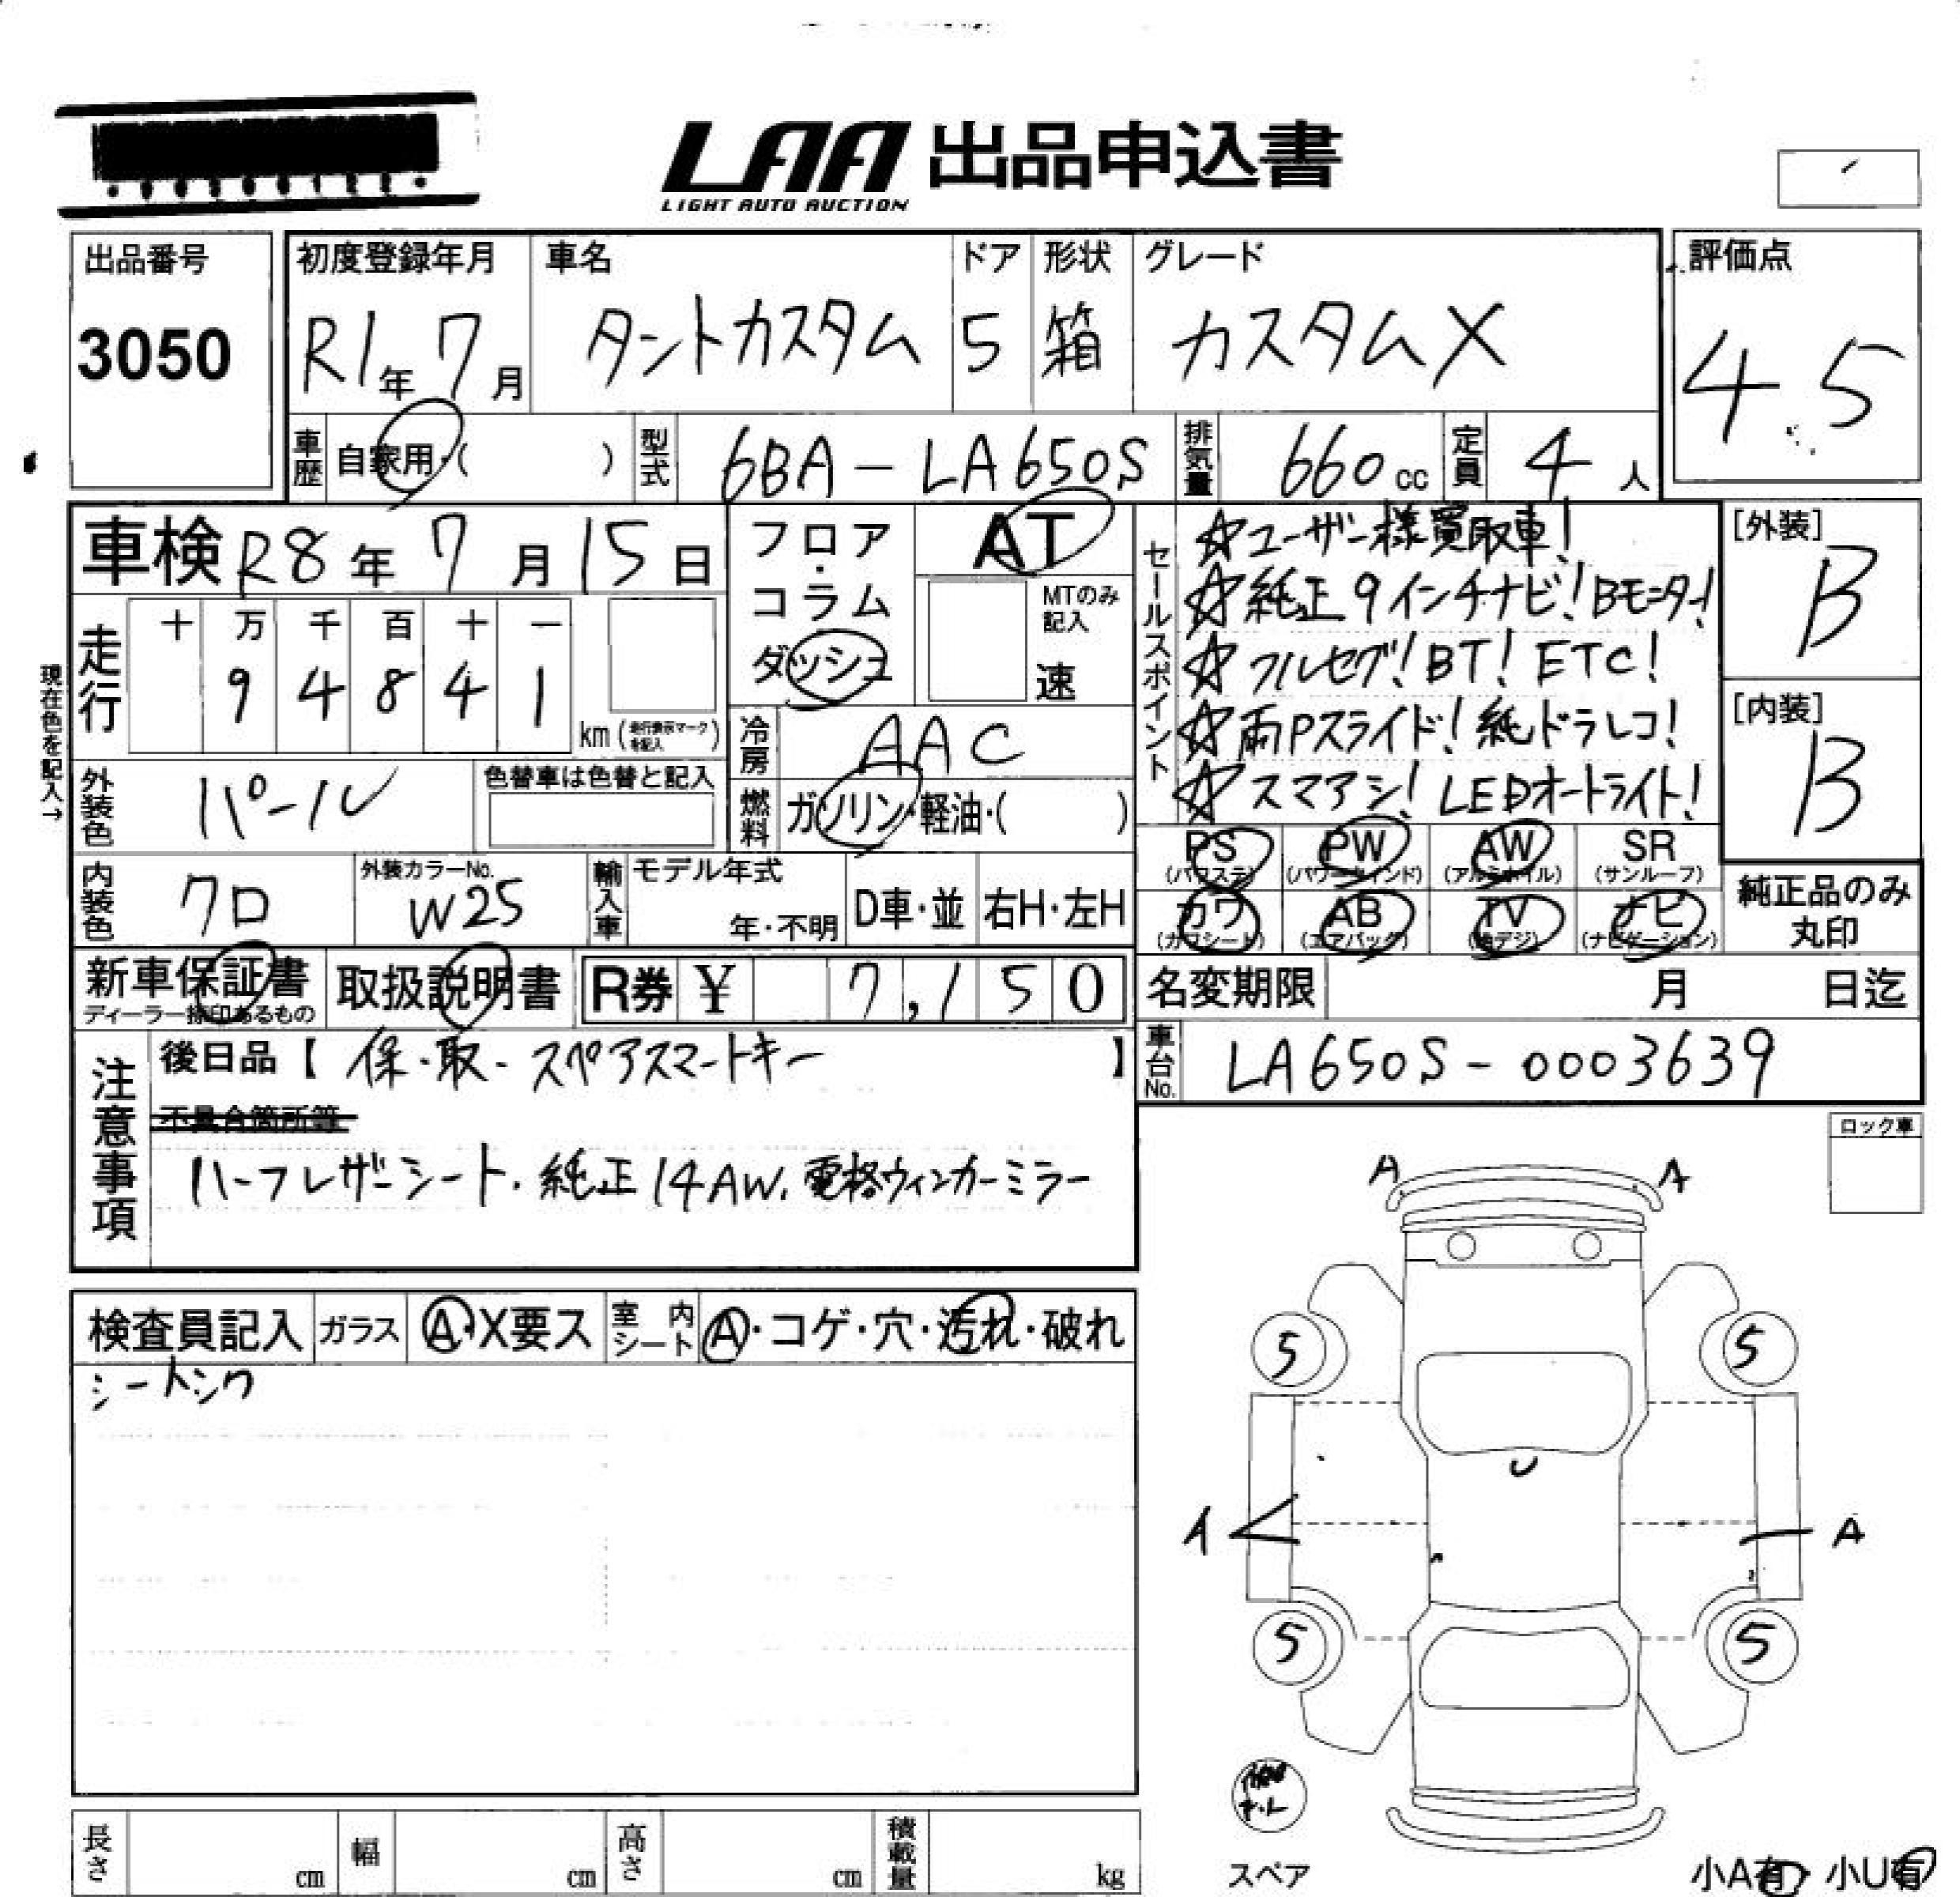 LAA 出品申込書
LIGHT AUTO AUCTION
出品番号
3050
初度登録年月
R1年 7月
車名
タントカスタム
ドア
5
形状
箱
グレード
カスタムX
評価点
4.5
車歴 自家用・( )
型式 6BA-LA650S
排気量 660cc
定員 4人
車検 R8年 7月 15日
走行
十 万 千 百 十 一
9 4 8 4 1
km(走行表示マークを記入)
現在色を記入→
フロア・コラム
ダッシュ
AT
MTのみ記入
速
冷房 AAC
燃料 ガソリン・軽油・( )
セールスポイント
☆ユーザー様買取車!
☆純正9インチナビ!Bモニター!
☆フルセグ!BT!ETC!
☆両Pスライド!純ドラレコ!
☆スマアシ!LEDオートライト!
[外装]
B
[内装]
B
外装色 パール
色替車は色替と記入
内装色 クロ
外装カラーNo.
W25
輸入車
モデル年式
年・不明
D車・並
右H・左H
PS
(パワステ)
PW
(パワーウィンド)
AW
(アルミホイル)
SR
(サンルーフ)
カワ
(カワシート)
AB
(エアバッグ)
TV
(地デジ)
ナビ
(ナビゲーション)
純正品のみ
丸印
新車保証書
ディーラー捺印あるもの
取扱説明書
R券 ¥ 7,150
名変期限 月 日迄
車台No. LA650S-0003639
注意事項
後日品【 保・取・スペアスマートキー 】
不具合箇所等
ハーフレザーシート.純正14AW.電格ウィンカーミラー
ロック車
検査員記入
ガラス
A・X要ス
室内シート
A・コゲ・穴・汚れ・破れ
シートシワ
A A
5 5
U
A A
5 5
スペア
小A有・小U有
長さ cm
幅 cm
高さ cm
積載量 kg